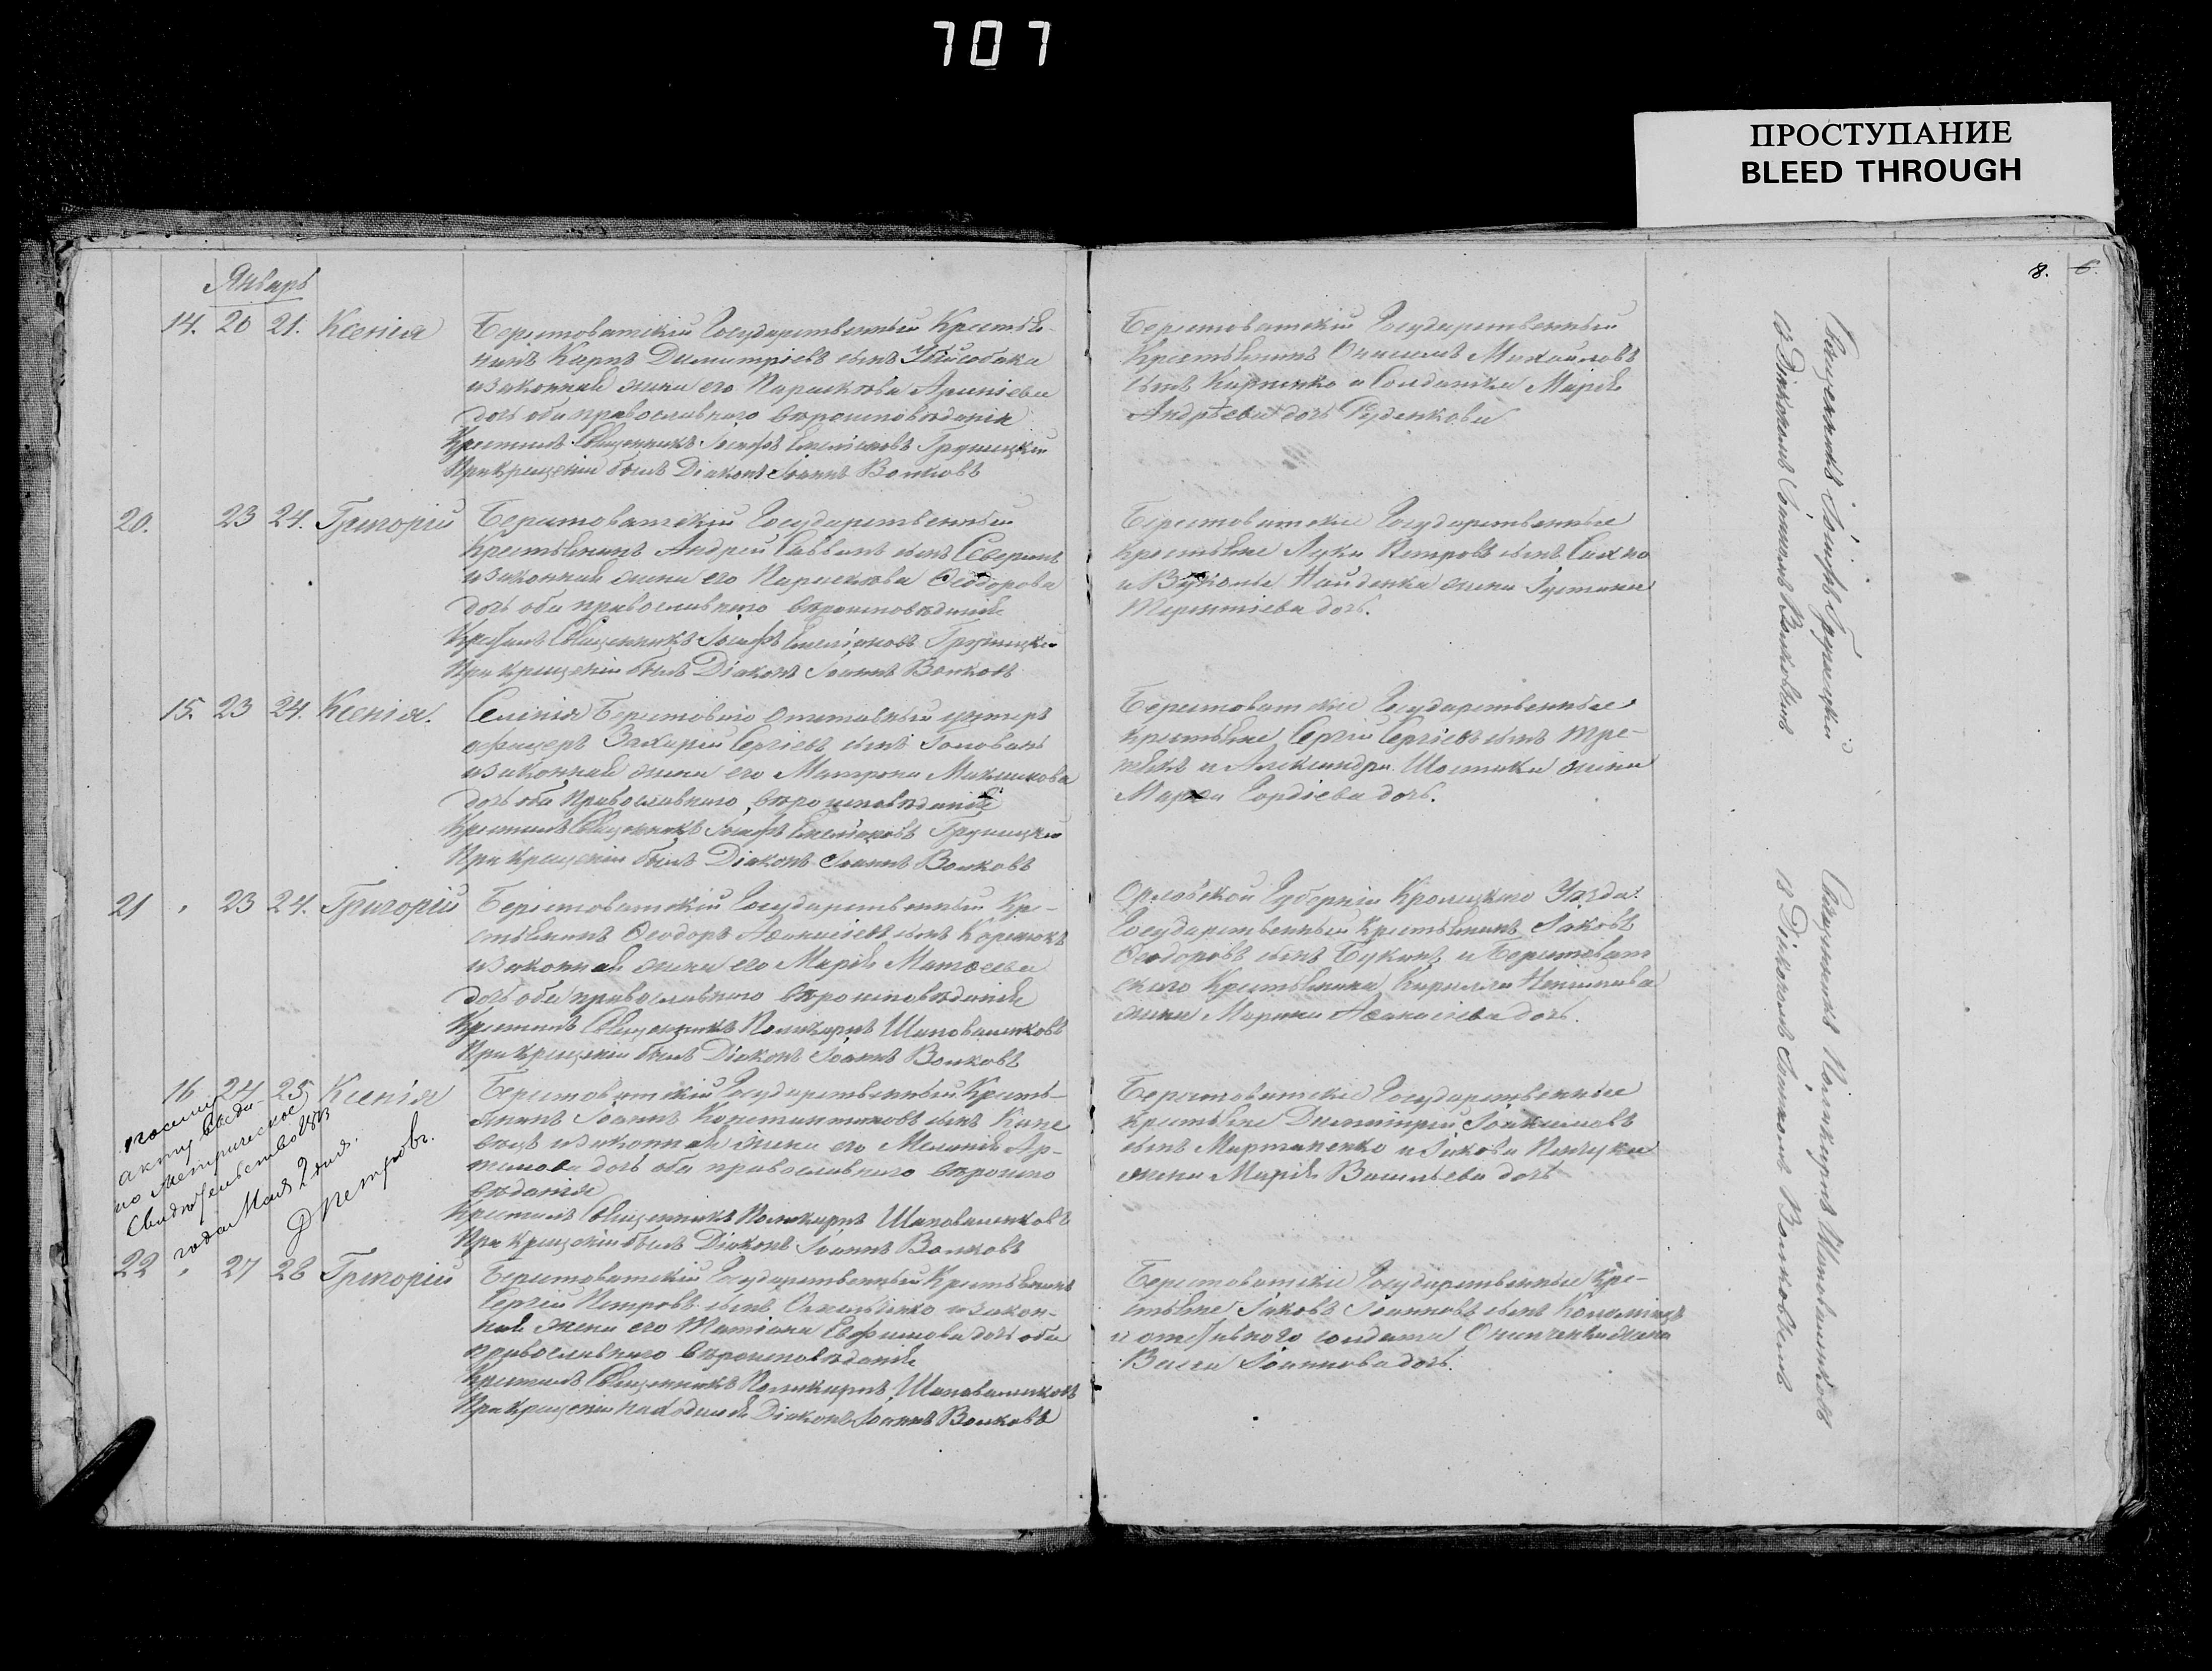 707
ПРОСТУПАНИЕ
BLEED THROUGH
8. 6.
Январь
14. 20 21. Ксенія
Берестоватскій Государственный Крестья-
нинъ Карпъ Димитріевъ сынъ Убійсобака
и законная жена его Параскева
дочь оба православнаго вѣроисповѣданія
Крестилъ Священникъ Іосифъ Емеліановъ Груницкій
При Крещеніи былъ Діаконъ Іоаннъ Волковъ
Берестоватскій Государственный
Крестьянинъ Онисимъ Михайловъ
сынъ Карпенко и Солдатка Марія
Андрѣева дочь Руденкова
20. 23 24. Григорій
Берестоватскій Государственный
Крестьянинъ Андрей Саввинъ сынъ Северинъ
и законная жена его Параскева Ѳеодорова
дочь оба православнаго вѣроисповѣданія
Крестилъ Священникъ Іосифъ Емеліановъ Груницкій
При Крещеніи былъ Діаконъ Іоаннъ Волковъ
Берестоватскіе Государственные
крестьяне Лука Петровъ сынъ Сахно
и Вуколы Найденка жена Іустина
Терентіева дочь.
15. 23 24. Ксенія.
Селенія Берестоваго Отставный унтеръ
офицеръ Захарій Сергіевъ сынъ Головань
и законная жена его Матрона Максимова
дочь оба Православнаго вѣроисповѣданія
Крестилъ Священникъ Іосифъ Емеліановъ Груницкій
При Крещеніи былъ Діаконъ Іоаннъ Волковъ
Берестоватскіе Государственные
крестьяне Сергій Сергіевъ сынъ Тре-
тьякъ и Александра Шостака жена
Марѳа Гордіева дочь.
21 " 23 24. Григорій
Берестоватскій Государственный Кре-
стьянинъ Ѳеодоръ Аѳанасіевъ сынъ Корсюкъ
и законная жена его Марія Матѳеева
дочь оба православнаго вѣроисповѣданія
Крестилъ Священникъ Поликарпъ Шаповаленковъ
При Крещеніи былъ Діаконъ Іоаннъ Волковъ
Орловской Губерніи Кромскаго Уѣзда
Государственный Крестьянинъ Іаковъ
Ѳеодоровъ сынъ Букинъ и Берестоват
скаго Крестьянина Кирилла
жена Марина Аѳанасіева дочь.
16 24 25 Ксенія
Берестоватскій Государственный Кресть-
янинъ Іоаннъ Константиновъ сынъ
и законная жена его Меланія Ар-
темова дочь оба православнаго вѣроиспо
вѣданія
Крестилъ Священникъ Поликарпъ Шаповаленковъ
При Крещеніи былъ Діаконъ Іоаннъ Волковъ
Берестоватскіе Государственные
крестьяне Димитрій Іоакимовъ
сынъ Мартыненко и Іакова
жена Марія Васильева дочь
по сему
акту выда-
но метрическое
свидѣтельство 1883
года Мая 2 дня.
Петровъ.
22 " 27 28 Григорій
Берестоватскій Государственный Крестьянинъ
Сергій Петровъ сынъ Омельченко и закон-
ная жена его Татіана Евфимова дочь оба
православнаго вѣроисповѣданія
Крестилъ Священникъ Поликарпъ Шаповаленковъ
При Крещеніи находился Діаконъ Іоаннъ Волковъ
Берестоватскіе Государственные Кре-
стьяне Іаковъ Іоанновъ сынъ Коломіецъ
и отставного солдата Онипченка жена
Васса Іоаннова дочь.
Священникъ Іосифъ Груницкій
съ Діакономъ Іоанномъ Волковымъ
Священникъ Поликарпъ Шаповаленковъ
съ Діакономъ Іоанномъ Волковымъ